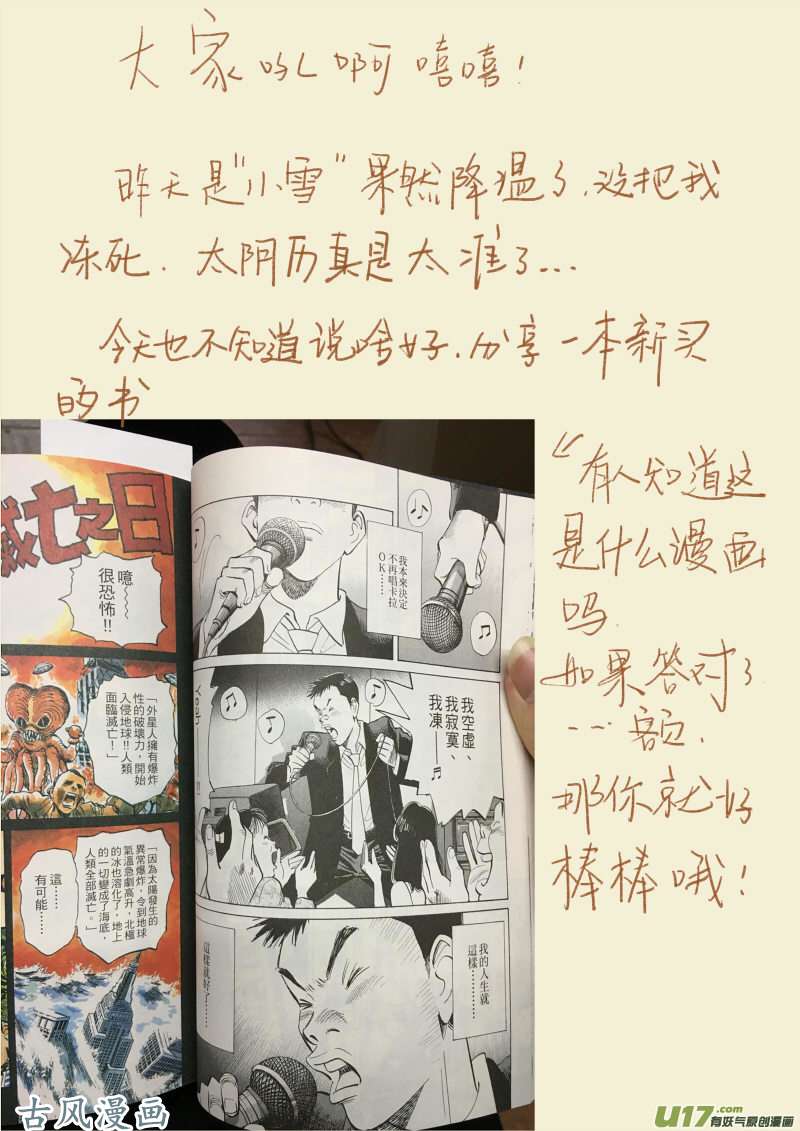 大家吼啊嘻嘻！
昨天是“小雪”果然降温了，没把我
冻死．太阴历真是太准了...
今天也不知道说啥好，分享一本新买
的书
有人知道这
是什么漫画
吗．
如果答对了
...额，
那你就好
棒棒哦！
滅亡之日
噫～～～
很恐怖!!
「外星人擁有爆炸
性的破壞力，開始
入侵地球!!人類
面臨滅亡！」
「因為太陽發生的
異常爆炸，令到地球
氣溫急劇高升，北極
的冰也溶化了，地上
的一切變成了海底，
人類全部滅亡。」
這……
有可能……
我本來決定
不再唱卡拉
OK……
我空虛、
我寂寞、
我凍—
Yeah
!!
我的人生就
這樣……
這樣就好了……
古风漫画
U17.com
有妖气原创漫画